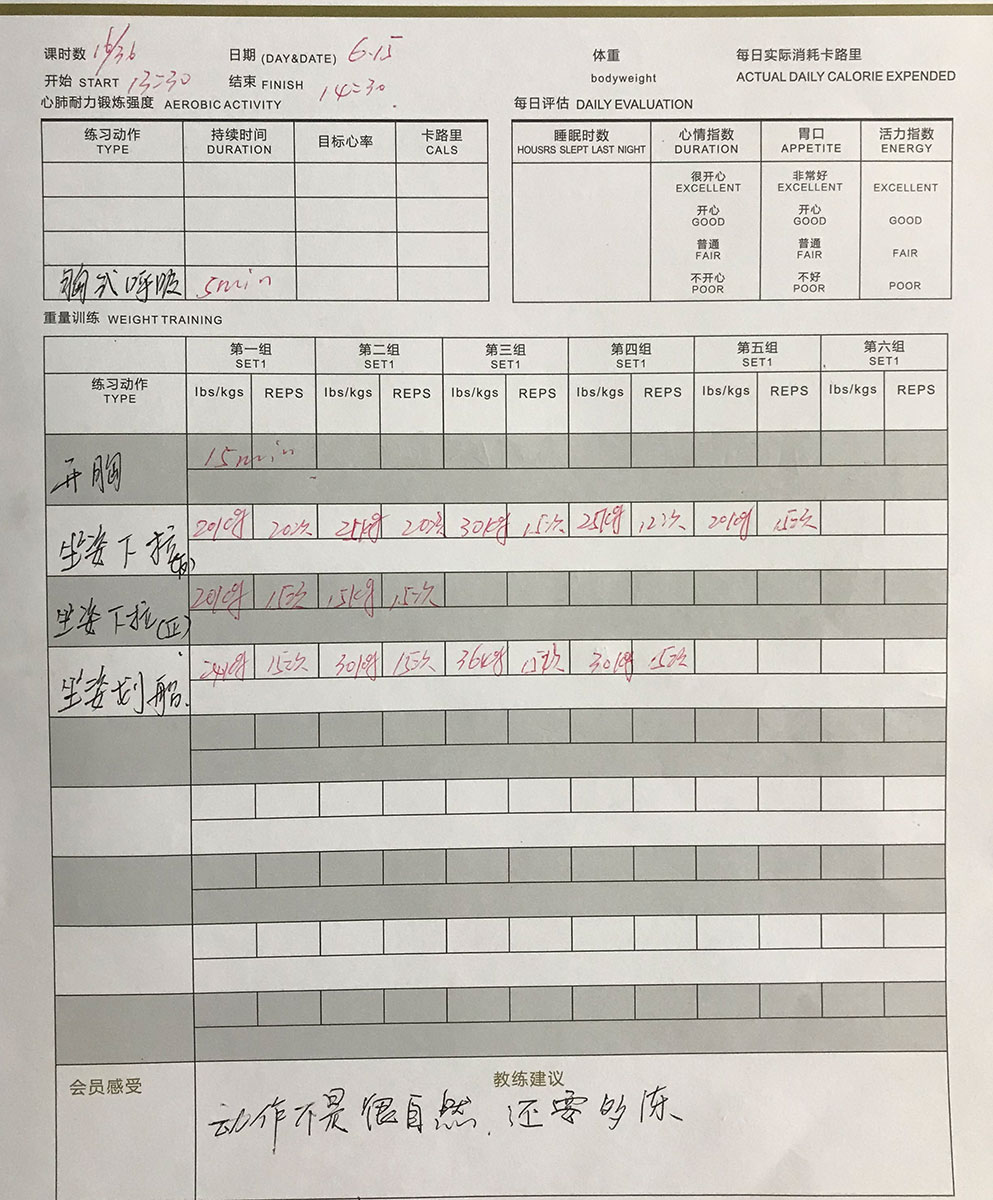 课时数 16/36 日期 (DAY&DATE) 6.15 体重 每日实际消耗卡路里
开始 START 13:30 结束 FINISH 14:30 bodyweight ACTUAL DAILY CALORIE EXPENDED
心肺耐力锻炼强度 AEROBIC ACTIVITY 每日评估 DAILY EVALUATION
练习动作 持续时间 目标心率 卡路里 睡眠时数 心情指数 胃口 活力指数
TYPE DURATION CALS HOUSRS SLEPT LAST NIGHT DURATION APPETITE ENERGY
很开心 非常好
EXCELLENT EXCELLENT EXCELLENT
开心 开心
GOOD GOOD GOOD
普通 普通
FAIR FAIR FAIR
不开心 不好
POOR POOR POOR
胸式呼吸 5min
重量训练 WEIGHT TRAINING
第一组 第二组 第三组 第四组 第五组 第六组
SET1 SET1 SET1 SET1 SET1 SET1
练习动作
TYPE
lbs/kgs REPS lbs/kgs REPS lbs/kgs REPS lbs/kgs REPS lbs/kgs REPS lbs/kgs REPS
开胸 15min
坐姿下拉 20kg 20次 25kg 20次 30kg 15次 25kg 12次 20kg 15次
坐姿下拉(正) 20kg 15次 15kg 15次
坐姿划船 24kg 15次 30kg 15次 36kg 15次 30kg 15次
会员感受 教练建议
动作不是很自然,还要多练